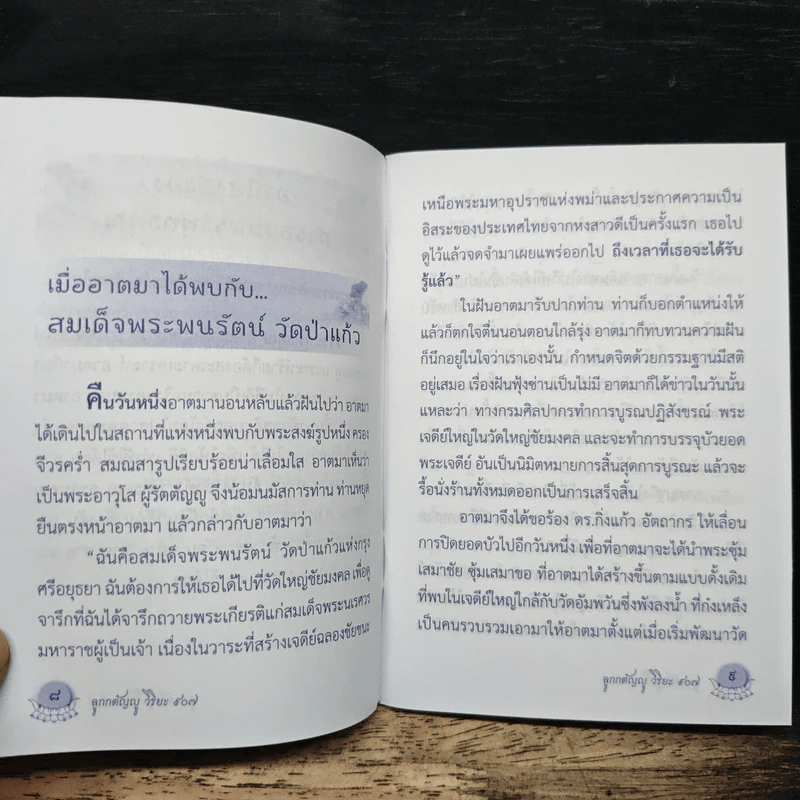 เมื่ออาตมาได้พบกับ...
สมเด็จพระพนรัตน์ วัดป่าแก้ว
คืนวันหนึ่งอาตมานอนหลับแล้วฝันไปว่า อาตมา
ได้เดินไปในสถานที่แห่งหนึ่งพบกับพระสงฆ์รูปหนึ่ง ครอง
จีวรคร่ำ สมณสารูปเรียบร้อยน่าเลื่อมใส อาตมาเห็นว่า
เป็นพระอาวุโส ผู้รัตตัญญู จึงน้อมนมัสการท่าน ท่านหยุด
ยืนตรงหน้าอาตมา แล้วกล่าวกับอาตมาว่า
“ฉันคือสมเด็จพระพนรัตน์ วัดป่าแก้วแห่งกรุง
ศรีอยุธยา ฉันต้องการให้เธอได้ไปที่วัดใหญ่ชัยมงคล เพื่อดู
จารึกที่ฉันได้จารึกถวายพระเกียรติแก่สมเด็จพระนเรศวร
มหาราชผู้เป็นเจ้า เนื่องในวาระที่สร้างเจดีย์ฉลองชัยชนะ
๘
ลูกกตัญญู วิริยะ ๙๐๗
เหนือพระมหาอุปราชแห่งพม่าและประกาศความเป็น
อิสระของประเทศไทยจากหงสาวดีเป็นครั้งแรก เธอไป
ดูไว้แล้วจดจำมาเผยแพร่ออกไป ถึงเวลาที่เธอจะได้รับ
รู้แล้ว”
ในฝันอาตมารับปากท่าน ท่านก็บอกตำแหน่งให้
แล้วก็ตกใจตื่นนอนตอนใกล้รุ่ง อาตมาก็ทบทวนความฝัน
ก็นึกอยู่ในใจว่าเราเองนั้น กำหนดจิตด้วยกรรมฐานมีสติ
อยู่เสมอ เรื่องฝันฟุ้งซ่านเป็นไม่มี อาตมาก็ได้ข่าวในวันนั้น
แหละว่า ทางกรมศิลปากรทำการบูรณปฏิสังขรณ์ พระ
เจดีย์ใหญ่ในวัดใหญ่ชัยมงคล และจะทำการบรรจุบัวยอด
พระเจดีย์ อันเป็นนิมิตหมายการสิ้นสุดการบูรณะ แล้วจะ
รื้อนั่งร้านทั้งหมดออกเป็นการเสร็จสิ้น
อาตมาจึงได้ขอร้อง ดร.กิ่งแก้ว อัตถากร ให้เลื่อน
การปิดยอดบัวไปอีกวันหนึ่ง เพื่อที่อาตมาจะได้นำพระซุ้ม
เสมาชัย ซุ้มเสมาขอ ที่อาตมาได้สร้างขึ้นตามแบบดั้งเดิม
ที่พบในเจดีย์ใหญ่ใกล้กับวัดอัมพวันซึ่งพังลงน้ำ ที่ก๋งเหล็ง
เป็นคนรวบรวมเอามาให้อาตมาตั้งแต่เมื่อเริ่มพัฒนาวัด
ลูกกตัญญู วิริยะ ๙๐๗
๙